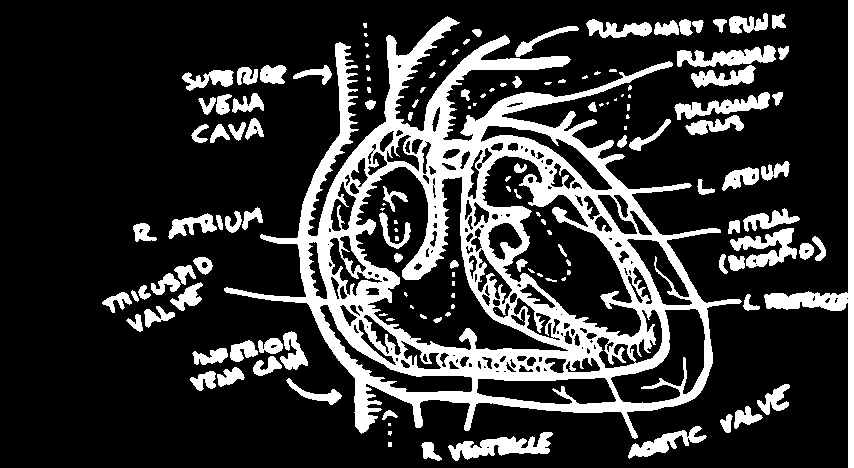 PULMONARY TRUNK
SUPERIOR
VENA
CAVA
PULMONARY
VALVE
PULMONARY
VEINS
L. ATRIUM
R. ATRIUM
MITRAL
VALVE
(BICUSPID)
TRICUSPID
VALVE
L. VENTRICLE
INFERIOR
VENA CAVA
R. VENTRICLE
AORTIC VALVE